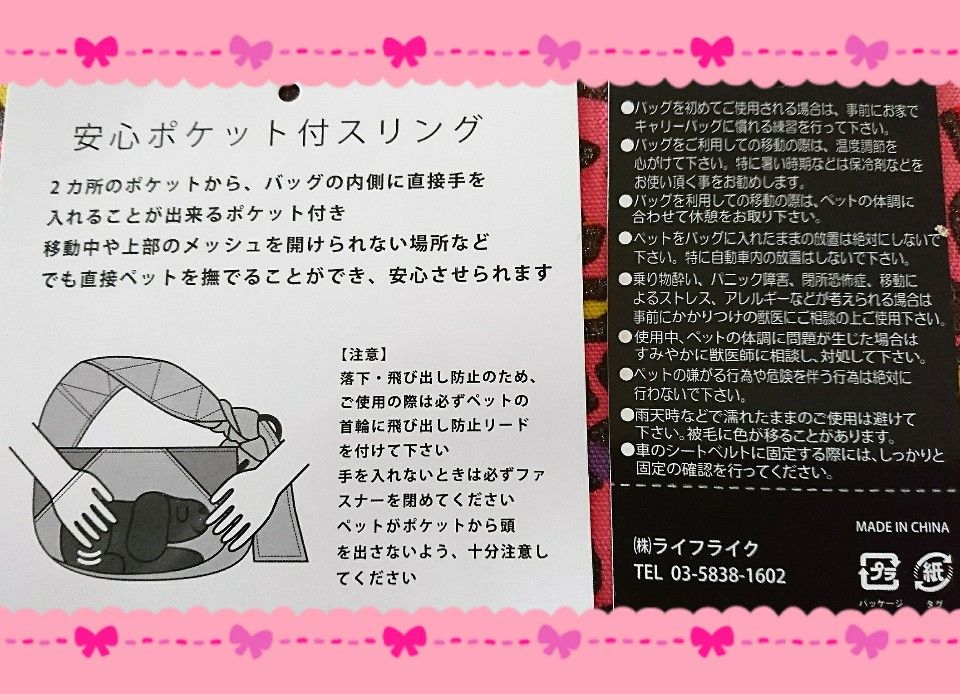 安心ポケット付スリング
2カ所のポケットから、バッグの内側に直接手を
入れることが出来るポケット付き
移動中や上部のメッシュを開けられない場所など
でも直接ペットを撫でることができ、安心させられます
【注意】
落下・飛び出し防止のため、
ご使用の際は必ずペットの
首輪に飛び出し防止リード
を付けて下さい
手を入れないときは必ずファ
スナーを閉めてください
ペットがポケットから頭
を出さないよう、十分注意し
てください
●バッグを初めてご使用される場合は、事前にお家で
キャリーバッグに慣れる練習を行って下さい。
●バッグをご利用しての移動の際は、温度調節を
心がけて下さい。特に暑い時期などは保冷剤などを
お使い頂く事をお勧めします。
●バッグを利用しての移動の際は、ペットの体調に
合わせて休憩をお取り下さい。
●ペットをバッグに入れたままの放置は絶対にしないで
下さい。特に自動車内の放置はしないで下さい。
●乗り物酔い、パニック障害、閉所恐怖症、移動に
よるストレス、アレルギーなどが考えられる場合は
事前にかかりつけの獣医にご相談の上ご使用下さい。
●使用中、ペットの体調に問題が生じた場合は
すみやかに獣医師に相談し、対処して下さい。
●ペットの嫌がる行為や危険を伴う行為は絶対に
行わないで下さい。
●雨天時などで濡れたままのご使用は避けて
下さい。被毛に色が移ることがあります。
●車のシートベルトに固定する際には、しっかりと
固定の確認を行ってください。
MADE IN CHINA
㈱ライフライク
TEL 03-5838-1602
プラ 紙
パッケージ タグ